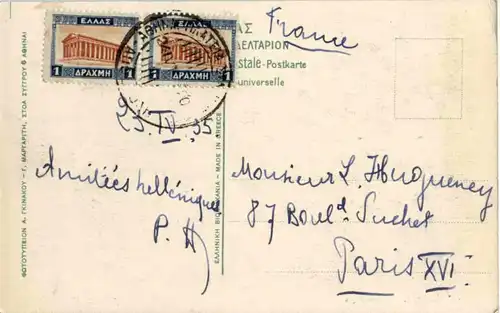 ΕΛΛΑΣ
1 ΔΡΑΧΜΗ 1
ΕΛΛΑΣ
1 ΔΡΑΧΜΗ 1
France
ΑΣ
ΔΕΛΤΑΡΙΟΝ
stale-Postkarte
universelle
23.IV.35
Amitiés helléniques
P. H
Monsieur L. Hugueney
87 Boul.d Suchet
Paris XVI
ΦΩΤΟΤΥΠΕΙΟΝ Α. ΓΚΙΝΑΚΟΥ - Γ. ΜΑΡΓΑΡΙΤΗ, ΣΤΟΑ ΣΥΓΓΡΟΥ 6 ΑΘΗΝΑΙ
ΕΛΛΗΝΙΚΗ ΒΙΟΜΗΧΑΝΙΑ - MADE IN GREECE